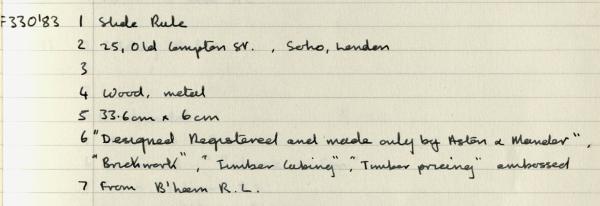 F330'83 1 Slide Rule
2 25, Old Compton St. , Soho, London
3
4 Wood, metal
5 33.6cm x 6cm
6 "Designed Registered and made only by Aston & Mander",
"Brickwork", "Timber Cubing", "Timber pricing" embossed
7 From B'ham R.L.